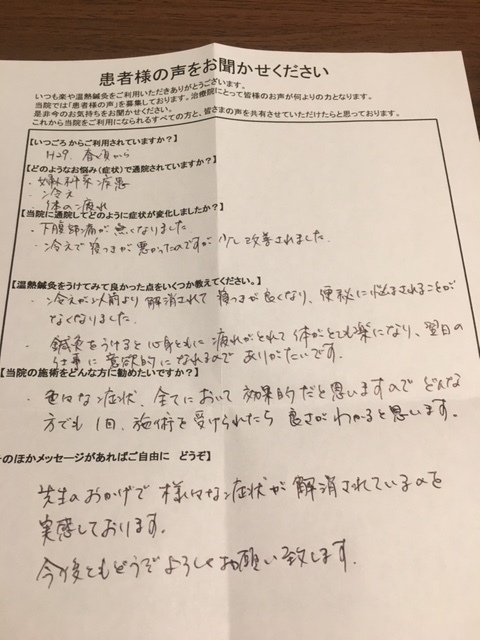 患者様の声をお聞かせください
いつも楽や温熱鍼灸をご利用いただきありがとうございます。
当院では「患者様の声」を募集しております。治療院にとって皆様のお声が何よりの力となります。
是非今のお気持ちをお聞かせください。
これから当院をご利用になられるすべての方と、皆さまの声を共有させていただけたらと思っております。
【いつごろからご利用されていますか？】
H29. 春頃から
【どのようなお悩み（症状）で通院されていますか？】
・婦人科系疾患
・冷え
・体の疲れ
【当院に通院してどのように症状が変化しましたか？】
・下腹部痛が無くなりました
・冷えで寝つきが悪かったのですが少し改善されました.
【温熱鍼灸をうけてみて良かった点をいくつか教えてください。】
・冷えが以前より解消されて寝つきが良くなり、便秘に悩まされることが
なくなりました.
・鍼灸をうけると心身ともに疲れがとれて体がとても楽になり、翌日の
仕事に意欲的になれるのでありがたいです.
【当院の施術をどんな方に勧めたいですか？】
・色々な症状、全てにおいて効果的だと思いますのでどんな
方でも1回、施術を受けられたら良さがわかると思います。
のほかメッセージがあればご自由に どうぞ】
先生のおかげで様々な症状が解消されているのを
実感しております。
今後ともどうぞよろしくお願い致します.